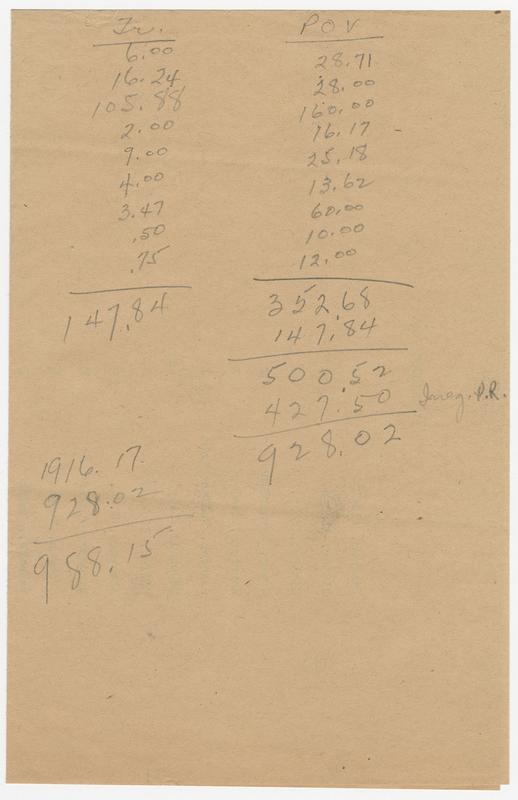 Tr.
6.00
16.24
105.88
2.00
9.00
4.00
3.47
.50
.75
147.84
POV
28.71
28.00
160.00
16.17
25.18
13.62
60.00
10.00
12.00
352.68
147.84
500.52
427.50 Irreg. P.R.
928.02
1916.17
928.02
988.15